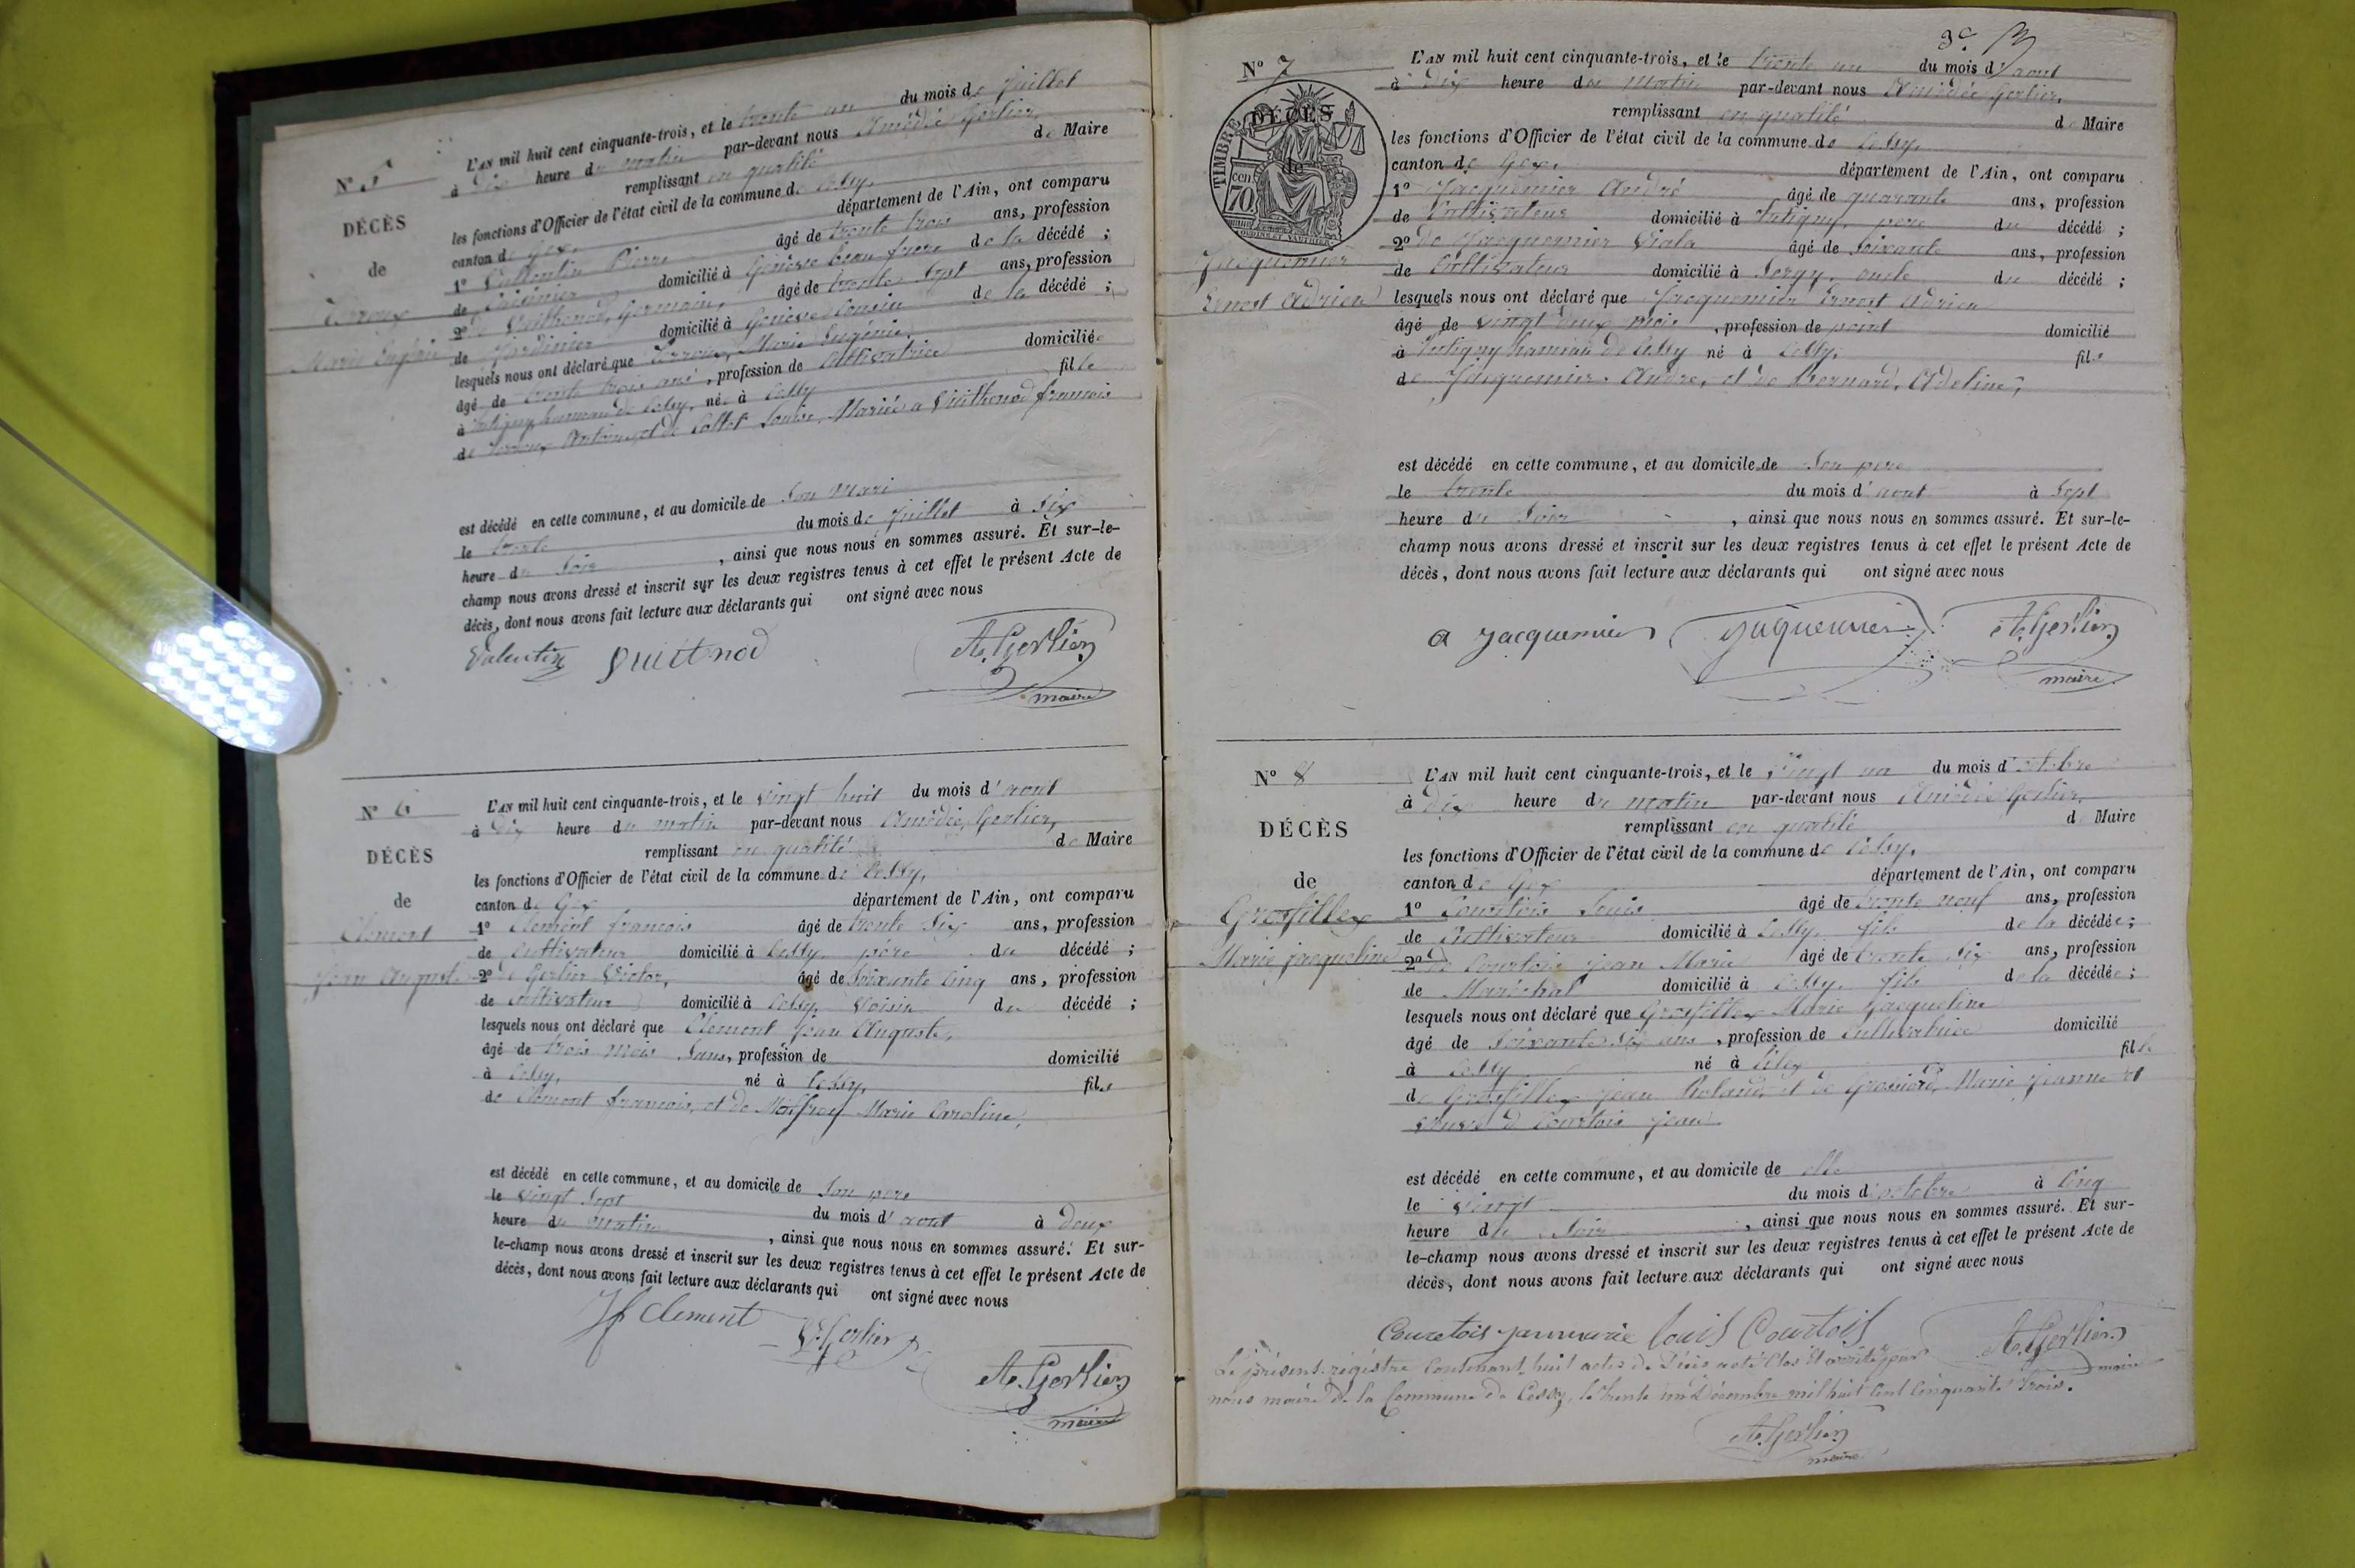 N° 5
DÉCÈS
de
Marie Eugénie
L'AN mil huit cent cinquante-trois, et le trente un du mois de Juillet
à dix heure du matin par-devant nous Amédée Gerlier,
remplissant en qualité de Maire
les fonctions d'Officier de l'état civil de la commune de Cessy,
canton de Gex, département de l'Ain, ont comparu
1° Vallentin Pierre âgé de trente trois ans, profession
de Jardinier domicilié à Genève beau frere de la décédé ;
2° de Vuithenod, Germain, âgé de trente sept ans, profession
de Jardinier domicilié à Genève Cousin de la décédé ;
lesquels nous ont déclaré que Marie Eugénie,
âgé de trente trois ans, profession de Cultivatrice domiciliée
à hameau de Cessy, née à Cessy fille
de Antoine, et de Collet Louise, Mariée a Vuithenod françois
est décédé en cette commune, et au domicile de Son Mari
le trente du mois de Juillet à Six
heure du Soir, ainsi que nous nous en sommes assuré. Et sur-le-
champ nous avons dressé et inscrit sur les deux registres tenus à cet effet le présent Acte de
décès, dont nous avons fait lecture aux déclarants qui ont signé avec nous
Valentin Vuitnod A. Gerlier
maire
N° 6
DÉCÈS
de
Clement
Jean August.
L'AN mil huit cent cinquante-trois, et le vingt huit du mois d'aout
à Dix heure du matin par-devant nous Amédée, Gerlier,
remplissant en qualité de Maire
les fonctions d'Officier de l'état civil de la commune de Cessy,
canton de Gex département de l'Ain, ont comparu
1° Clement francois âgé de trente Six ans, profession
de Cultivateur domicilié à Cessy père du décédé ;
2° de Gerlier Victor, âgé de Soixante Cinq ans, profession
de Cultivateur domicilié à Cessy, Voisin du décédé ;
lesquels nous ont déclaré que Clement Jean Auguste,
âgé de trois mois Sans, profession de domicilié
à Cessy, né à Cessy, fils
de Clement francois, et de Marie Caroline,
est décédé en cette commune, et au domicile de Son pere
le vingt Sept du mois d'aout à deux
heure du matin, ainsi que nous nous en sommes assuré. Et sur-
le-champ nous avons dressé et inscrit sur les deux registres tenus à cet effet le présent Acte de
décès, dont nous avons fait lecture aux déclarants qui ont signé avec nous
Jf Clement Vr. Gerlier
A. Gerlier
maire
N° 7
TIMBRE
DÉCÈS
de
70 cen
Jacquemier
Ernest Adrien
L'AN mil huit cent cinquante-trois, et le trente un du mois d'aout
à dix heure du matin par-devant nous Amédée Gerlier,
remplissant en qualité de Maire
les fonctions d'Officier de l'état civil de la commune de Cessy,
canton de Gex, département de l'Ain, ont comparu
1° Jacquemier André âgé de quarante ans, profession
de Cultivateur domicilié à pere du décédé ;
2° de Jacquemier âgé de soixante ans, profession
de Cultivateur domicilié à Sergy, oncle du décédé ;
lesquels nous ont déclaré que Jacquemier Ernest Adrien
âgé de vingt deux mois, profession de point domicilié
à hameau de Cessy né à Cessy, fils
de Jacquemier André, et de Bernard, Adeline,
est décédé en cette commune, et au domicile de Son pere
le trente du mois d'aout à Sept
heure du Soir, ainsi que nous nous en sommes assuré. Et sur-le-
champ nous avons dressé et inscrit sur les deux registres tenus à cet effet le présent Acte de
décès, dont nous avons fait lecture aux déclarants qui ont signé avec nous
a Jacquemier Jaquemier A. Gerlier
maire
N° 8
DÉCÈS
de
Grosfillex
Marie jacqueline
L'AN mil huit cent cinquante-trois, et le vingt un du mois d'octobre
à Dix heure du matin par-devant nous Amédée Gerlier,
remplissant en qualité de Maire
les fonctions d'Officier de l'état civil de la commune de Cessy,
canton de Gex département de l'Ain, ont comparu
1° Courtois Louis âgé de trente neuf ans, profession
de Cultivateur domicilié à Cessy, fils de la décédée ;
2° de Courtois jean Marie âgé de trente Six ans, profession
de Maréchal domicilié à Cessy, fils de la décédée ;
lesquels nous ont déclaré que Grosfillex Marie Jacqueline
âgé de Soixante Six ans, profession de Cultivatrice domicilié
à Cessy né à fille
de Grosfillex jean et de Marie jeanne et
veuve de Courtois jean
est décédé en cette commune, et au domicile de elle
le vingt du mois d'octobre à Cinq
heure du Soir, ainsi que nous nous en sommes assuré. Et sur-
le-champ nous avons dressé et inscrit sur les deux registres tenus à cet effet le présent Acte de
décès, dont nous avons fait lecture aux déclarants qui ont signé avec nous
Couretois janmarie Louis Courtois A. Gerlier
maire
Le présent régistre Contenant huit actes de Décès a été Clos et arrêté par
nous maire de la Commune de Cessy, le trente un Décembre mil huit Cent Cinquante trois.
A. Gerlier
maire